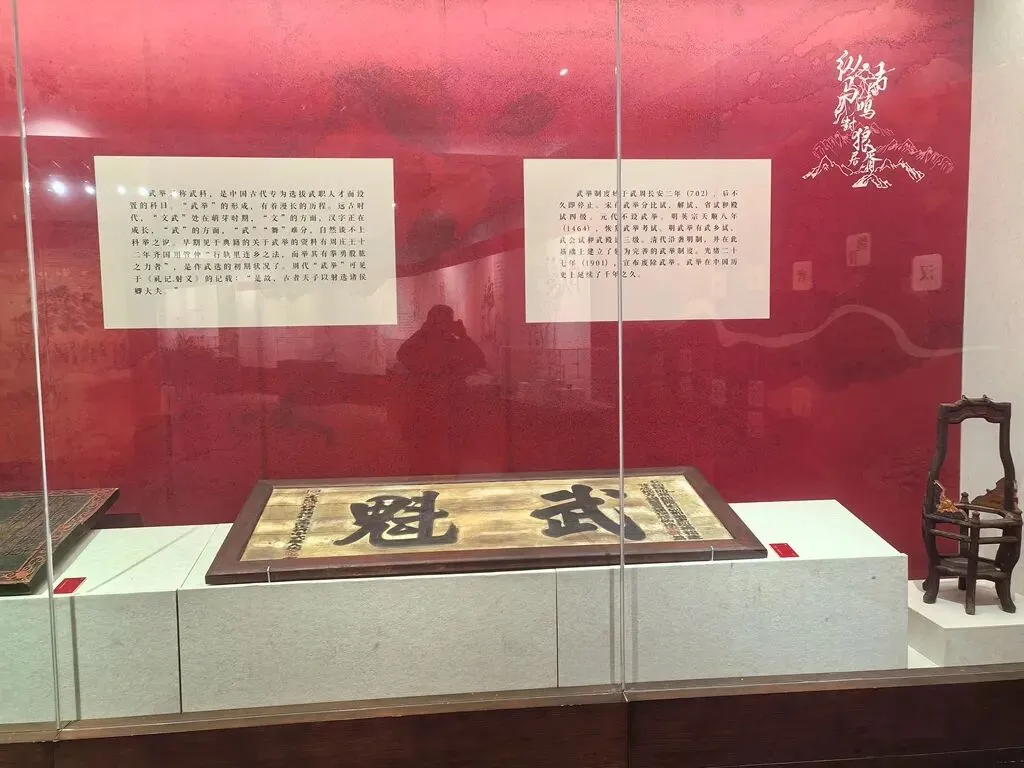 武举又称武科，是中国古代专为选拔武职人才而设
置的科目。“武举”的形成，有着漫长的历程。远古时
代，“文武”处在萌芽时期，“文”的方面，汉字正在
成长，“武”的方面，“武”“舞”难分，自然谈不上
科举之说。早期见于典籍的关于武举的资料有周庄王十
二年齐国用管仲“行轨里连乡之法，而举其有拳勇股肱
之力者”，是作武选的初期状况了。周代“武举”可见
于《礼记·射义》的记载：“是故，古者天子以射选诸侯
卿大夫。”
武举制度始于武周长安二年（702），后不
久即停止。宋代武举分比试、解试、省试和殿
试四级。元代不设武举。明英宗天顺八年
（1464），恢复武举考试。明武举有武乡试、
武会试和武殿试三级。清代沿袭明制，并在此
基础上建立了较为完善的武举制度。光绪二十
七年（1901），宣布废除武举。武举在中国历
史上延续了千年之久。
纵马
鸣
封狼居胥
汉
魁武